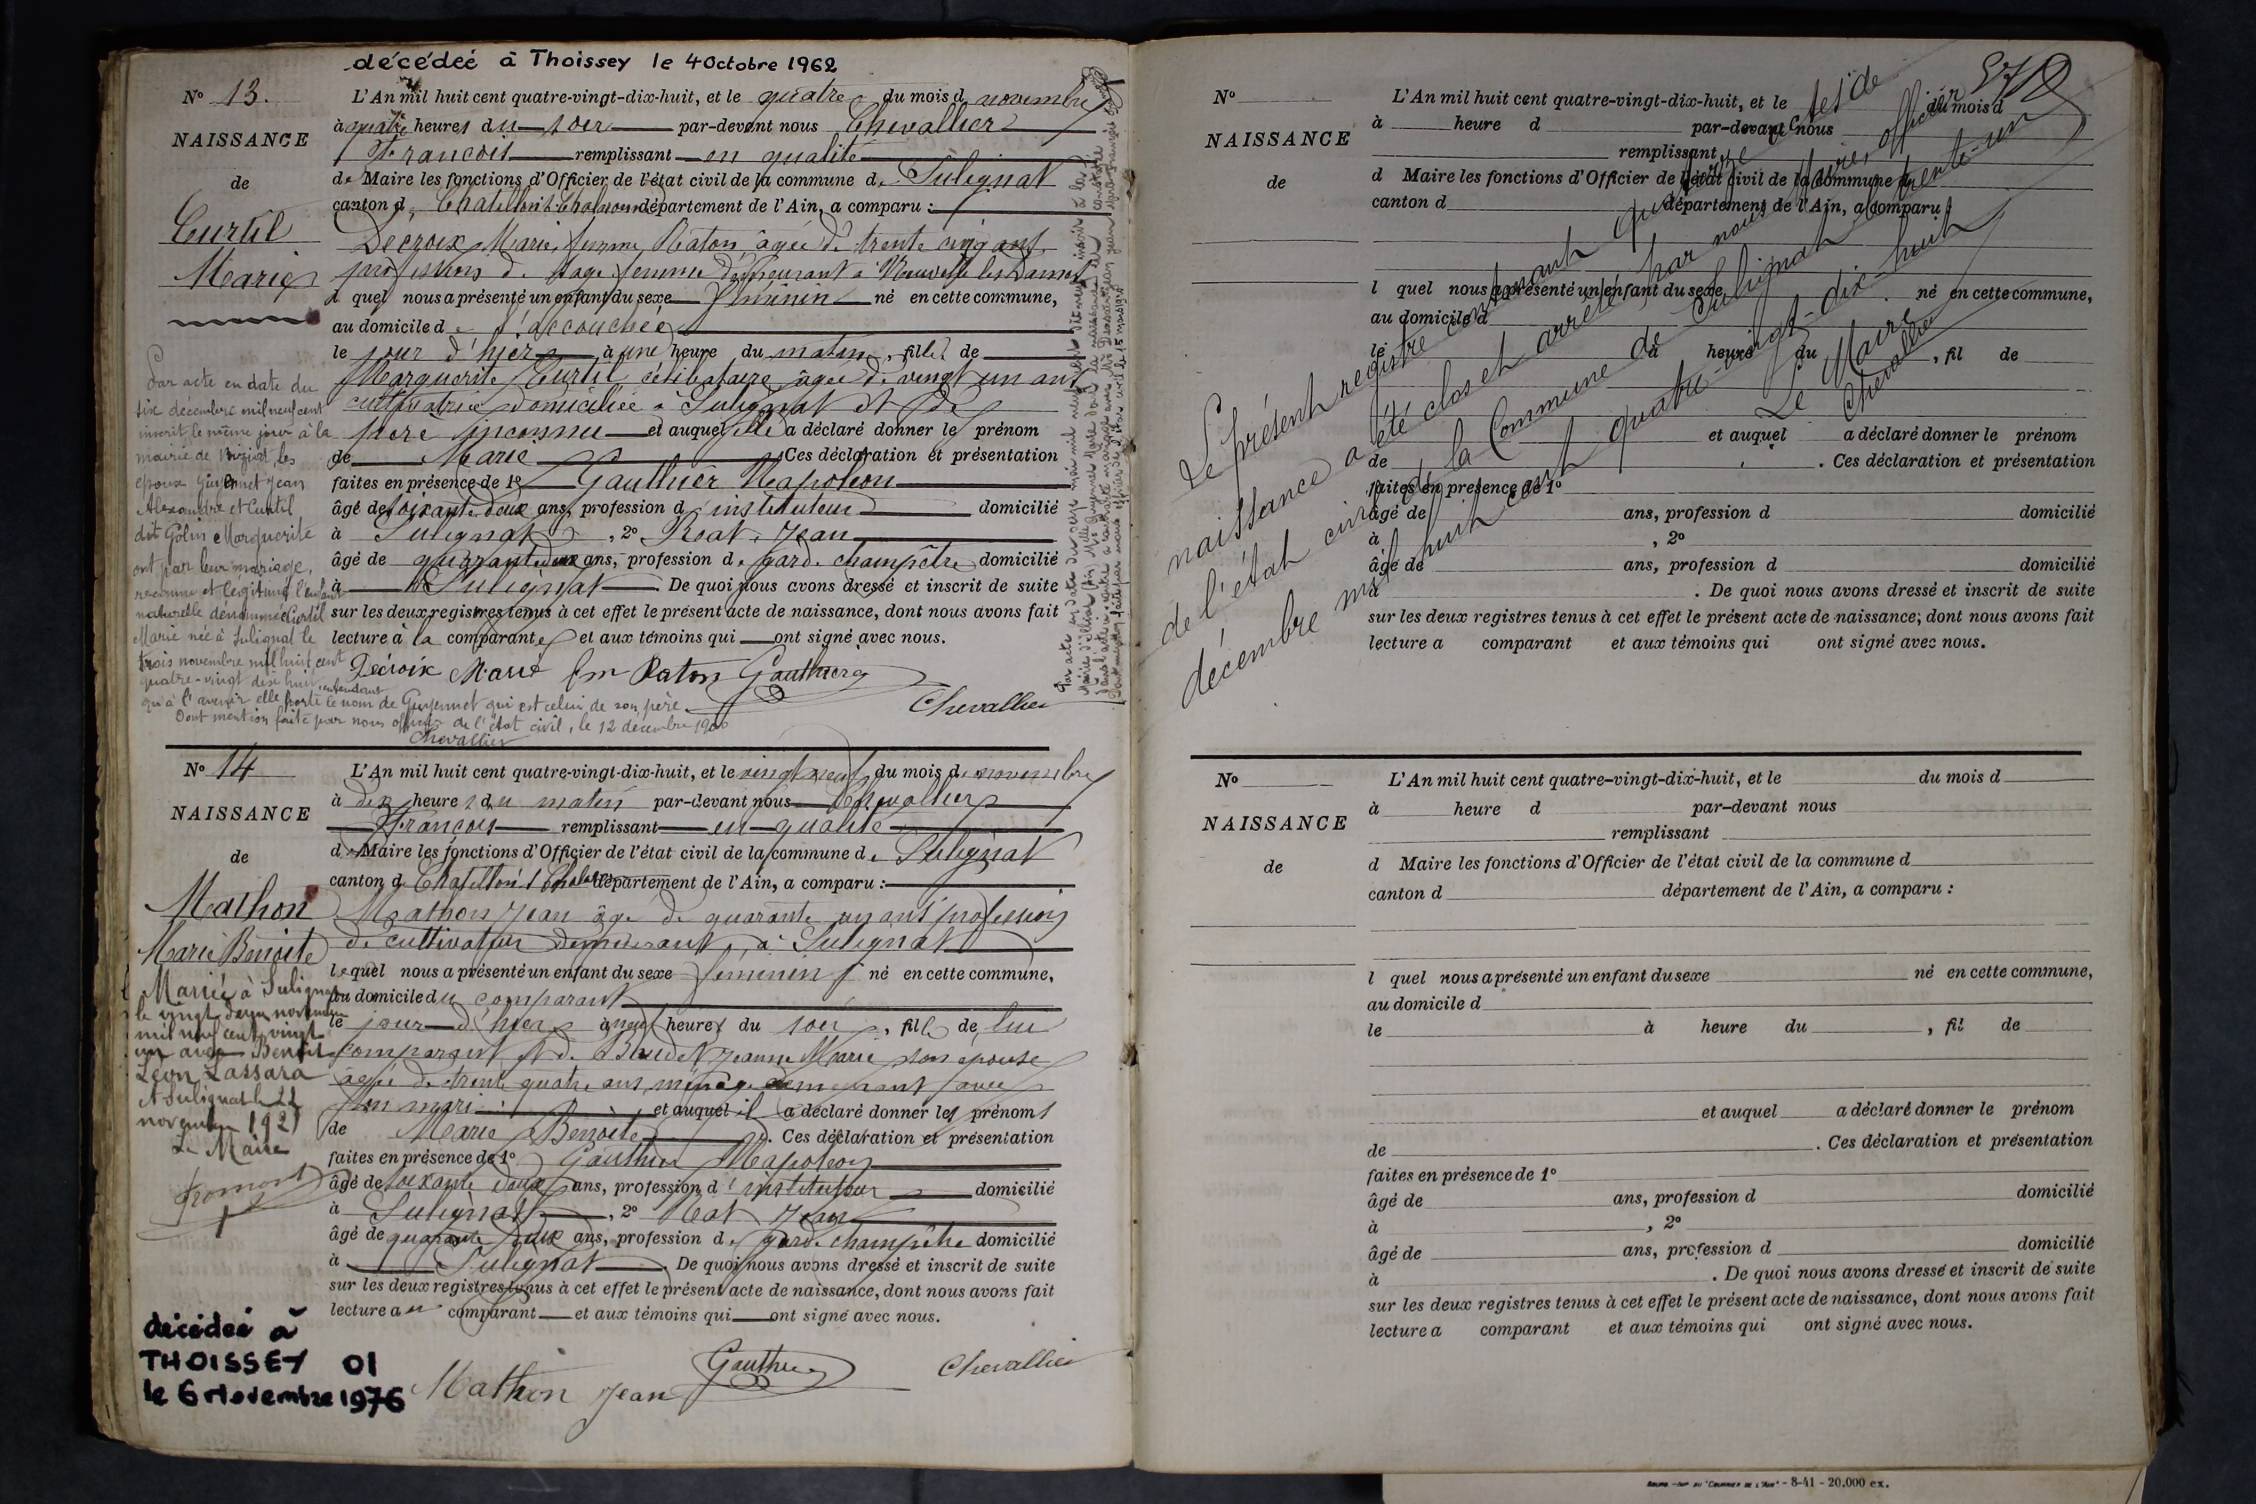 décédée à Thoissey le 4 Octobre 1962
N° 13.
NAISSANCE
de
Curtil
Marie
L'An mil huit cent quatre-vingt-dix-huit, et le quatre du mois de novembre
à quatre heures du soir par-devant nous Chevallier
François remplissant en qualité
de Maire les fonctions d'Officier de l'état civil de la commune de Sulignat
canton de Chatillon s/ Chalaronne département de l'Ain, a comparu :
Decroix Marie, femme Raton, âgée de trente cinq ans
profession de sage femme demeurant à Neuville les Dames
a quel nous a présenté un enfant du sexe féminin né en cette commune,
au domicile de l'accouchée
le jour d'hier à une heure du matin, fille de
Marguerite Curtil célibataire âgée de vingt un ans
cultivatrice domiciliée à Sulignat et de
père inconnu et auquel elle a déclaré donner le prénom
de Marie Ces déclaration et présentation
faites en présence de 1° Gauthier Napoléon
âgé de soixante deux ans, profession d'instituteur domicilié
à Sulignat, 2° Réat Jean
âgé de quarante deux ans, profession de garde champêtre domicilié
à Sulignat De quoi nous avons dressé et inscrit de suite
sur les deux registres tenus à cet effet le présent acte de naissance, dont nous avons fait
lecture à la comparante et aux témoins qui ont signé avec nous.
Decroix Marie fm Raton Gauthier
Chevallier
Par acte en date du
six décembre mil neuf cent
inscrit le même jour à la
mairie de les
époux Guyennet Jean
Alexandre et Curtil
dit Golin Marguerite
ont par leur mariage,
reconnu et légitimé l'enfant
naturelle dénommée Curtil
Marie née à Sulignat le
trois novembre mil huit cent
quatre-vingt dix huit, entendant
qu'à l'avenir elle porte le nom de Guyennet qui est celui de son père.
Dont mention faite par nous officier de l'état civil, le 12 décembre 1900
Chevallier
N° 14
NAISSANCE
de
Mathon
Marie Benoite
L'An mil huit cent quatre-vingt-dix-huit, et le vingt neuf du mois de novembre
à dix heures du matin par-devant nous Chevallier
François remplissant en qualité
de Maire les fonctions d'Officier de l'état civil de la commune de Sulignat
canton de Chatillon s/ Chalaronne département de l'Ain, a comparu :
Mathon Jean âgé de quarante un ans profession
de cultivateur demeurant à Sulignat
lequel nous a présenté un enfant du sexe féminin né en cette commune,
au domicile du comparant
le jour d'hier à neuf heures du soir, fille de lui
comparant et de Baudet Jeanne Marie son épouse
âgée de trente quatre ans, ménagère demeurant avec
son mari et auquel il a déclaré donner les prénoms
de Marie Benoite. Ces déclaration et présentation
faites en présence de 1° Gauthier Napoléon
âgé de soixante deux ans, profession d'instituteur domicilié
à Sulignat, 2° Réat Jean
âgé de quarante deux ans, profession de garde champêtre domicilié
à Sulignat. De quoi nous avons dressé et inscrit de suite
sur les deux registres tenus à cet effet le présent acte de naissance, dont nous avons fait
lecture au comparant et aux témoins qui ont signé avec nous.
Mathon Jean Gauthier Chevallier
Mariée à Sulignat
le vingt deux novembre
mil neuf cent vingt
un avec Benoit
Léon Lassara
A Sulignat le 22
novembre 1921
Le Maire
Fromont
décédée à
THOISSEY 01
le 6 Novembre 1976
N°
NAISSANCE
de
L'An mil huit cent quatre-vingt-dix-huit, et le du mois d
à heure d par-devant nous
remplissant
d Maire les fonctions d'Officier de l'état civil de la commune d
canton d département de l'Ain, a comparu
l quel nous a présenté un enfant du sexe né en cette commune,
au domicile d
le à heure du , fil de
et auquel a déclaré donner le prénom
de . Ces déclaration et présentation
faites en présence de 1°
âgé de ans, profession d domicilié
à , 2°
âgé de ans, profession d domicilié
à . De quoi nous avons dressé et inscrit de suite
sur les deux registres tenus à cet effet le présent acte de naissance; dont nous avons fait
lecture a comparant et aux témoins qui ont signé avec nous.
Le présent registre contenant quatorze actes de
naissance a été clos et arrêté par nous Maire, officier
de l'état civil de la Commune de Sulignat le trente-un
décembre mil huit cent quatre-vingt-dix-huit
Le Maire
Chevallier
N°
NAISSANCE
de
L'An mil huit cent quatre-vingt-dix-huit, et le du mois d
à heure d par-devant nous
remplissant
d Maire les fonctions d'Officier de l'état civil de la commune d
canton d département de l'Ain, a comparu :
l quel nous a présenté un enfant du sexe né en cette commune,
au domicile d
le à heure du , fil de
et auquel a déclaré donner le prénom
de . Ces déclaration et présentation
faites en présence de 1°
âgé de ans, profession d domicilié
à , 2°
âgé de ans, profession d domicilié
à . De quoi nous avons dressé et inscrit de suite
sur les deux registres tenus à cet effet le présent acte de naissance, dont nous avons fait
lecture a comparant et aux témoins qui ont signé avec nous.
BOURG — IMP. DU "COURRIER DE L'AIN" - 8-41 - 20.000 ex.